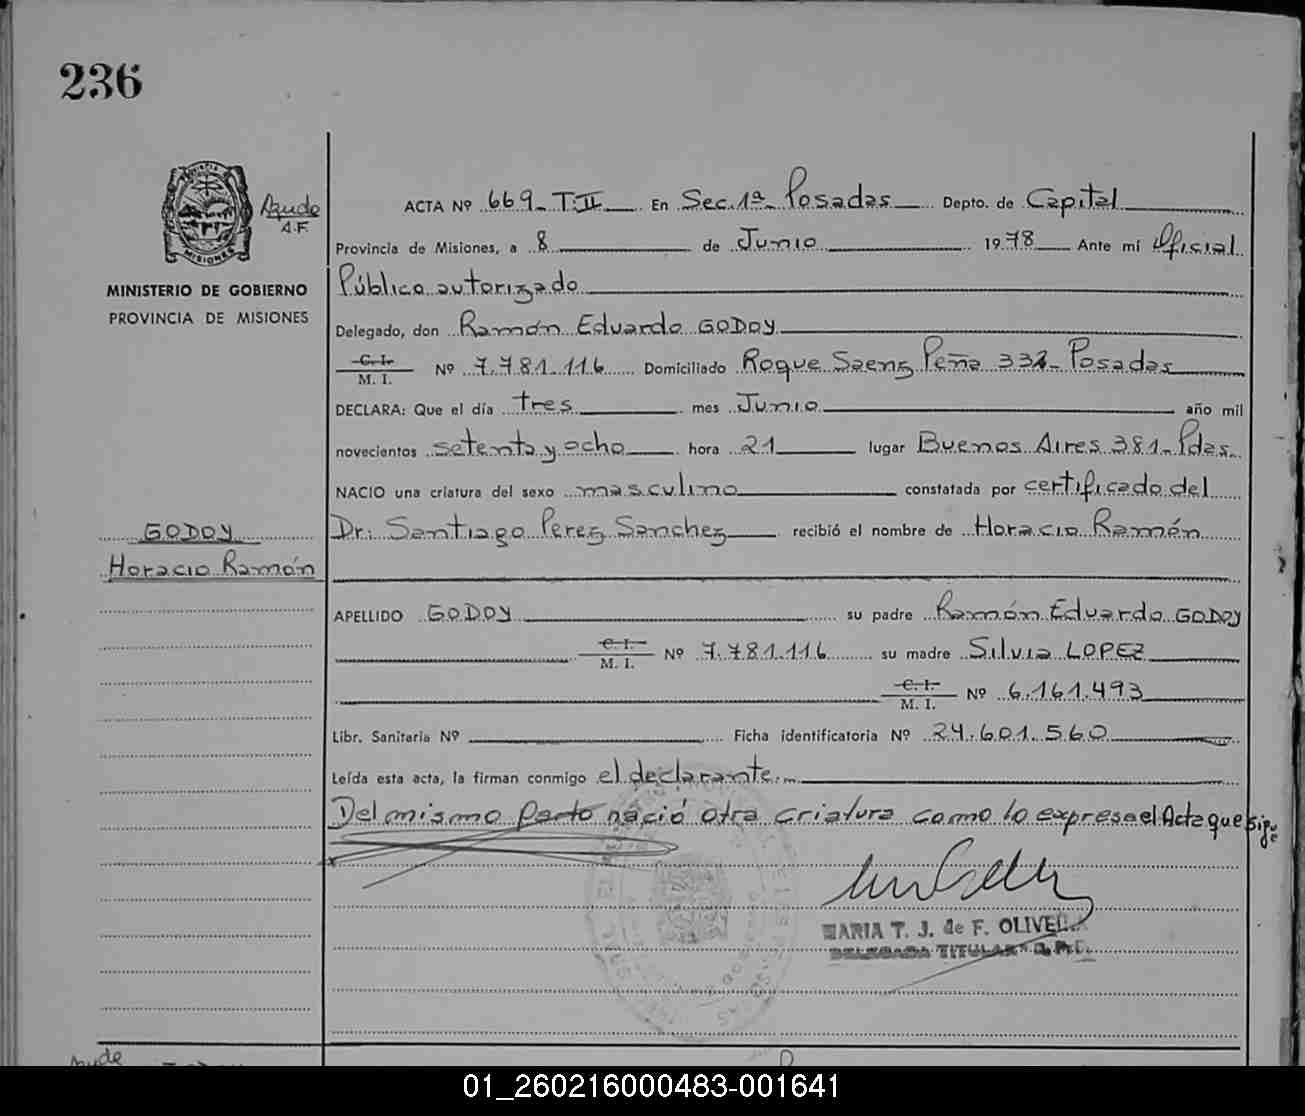 236
PROVINCIA
MISIONES
Ayude
A.F.
MINISTERIO DE GOBIERNO
PROVINCIA DE MISIONES
GODOY
Horacio Ramón
ACTA Nº 669 - T.II En Sec. 1ª Posadas Depto. de Capital
Provincia de Misiones, a 8 de Junio 1978 Ante mí Oficial
Público autorizado
Delegado, don Ramón Eduardo GODOY
C. I.
M. I. Nº 7.781.116 Domiciliado Roque Saenz Peña 332 - Posadas
DECLARA: Que el día tres mes Junio año mil
novecientos setenta y ocho hora 21 lugar Buenos Aires 381 - Pdas.
NACIO una criatura del sexo masculino constatada por certificado del
Dr: Santiago Perez Sanchez recibió el nombre de Horacio Ramón
APELLIDO GODOY su padre Ramón Eduardo GODOY
C. I.
M. I. Nº 7.781.116 su madre Silvia LOPEZ
C. I.
M. I. Nº 6.161.493
Libr. Sanitaria Nº Ficha identificatoria Nº 24.601.560
Leída esta acta, la firman conmigo el declarante.
Del mismo parto nació otra criatura como lo expresa el Acta que sigue
MARIA T. J. de F. OLIVERA
DELEGADA TITULAR
01_260216000483-001641